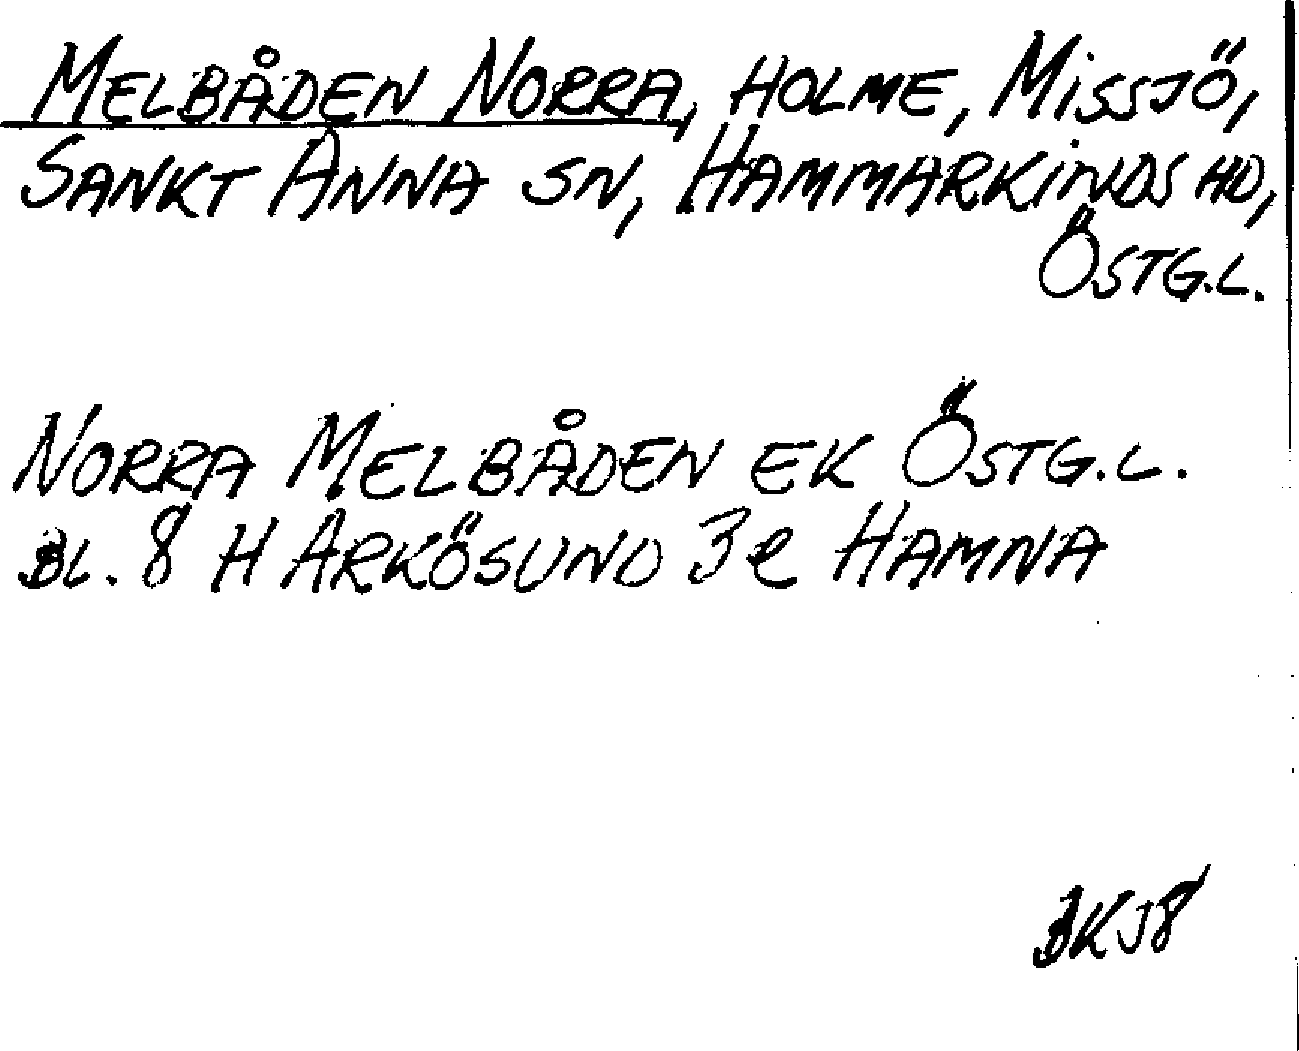 MELBÅDEN NORRA, HOLME, MISSJÖ,
SANKT ANNA SN, HAMMARKINDS HD,
ÖSTG.L.
NORRA MELBÅDEN EK ÖSTG.L.
BL. 8 H ARKÖSUND 3e HAMNA
BKJ8